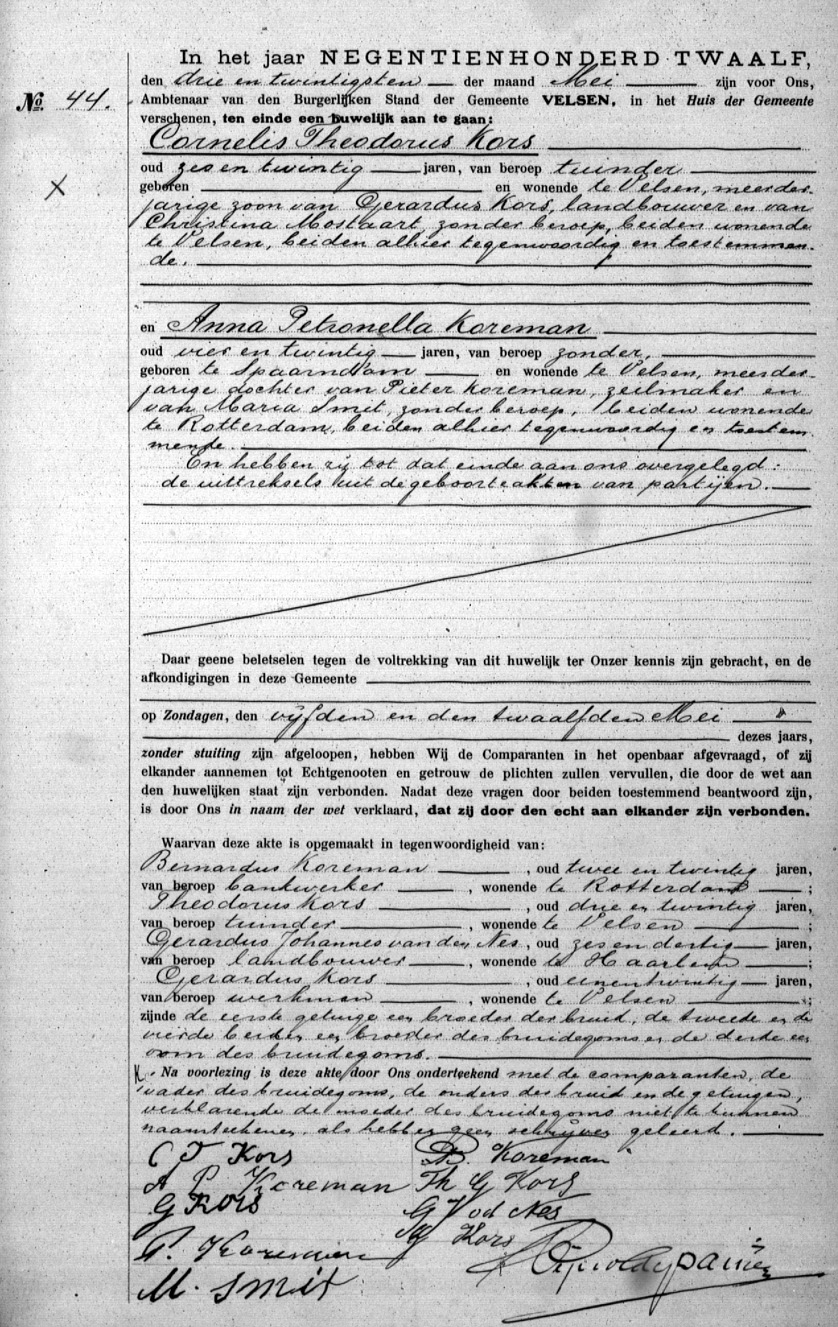 In het jaar NEGENTIENHONDERD TWAALF,
den drie en twintigsten der maand Mei zijn voor Ons,
No. 44.
Ambtenaar van den Burgerlijken Stand der Gemeente VELSEN, in het Huis der Gemeente
verschenen, ten einde een huwelijk aan te gaan:
Cornelis Theodorus Kors
oud zes en twintig jaren, van beroep tuinder
geboren en wonende te Velsen, meerder-
jarige zoon van Gerardus Kors, landbouwer en van
Christina Mostaart, zonder beroep, beiden wonende
te Velsen, beiden alhier tegenwoordig en toestemmen-
de.
en Anna Petronella Koreman
oud vier en twintig jaren, van beroep zonder,
geboren te Spaarndam en wonende te Velsen, meerder-
jarige dochter van Pieter Koreman, zeilmaker en
van Maria Smit, zonder beroep, beiden wonende
te Rotterdam, beiden alhier tegenwoordig en toestem-
mende.
En hebben zij tot dat einde aan ons overgelegd:
de uittreksels uit de geboorteakten van partijen.
Daar geene beletselen tegen de voltrekking van dit huwelijk ter Onzer kennis zijn gebracht, en de
afkondigingen in deze Gemeente
op Zondagen, den vijfden en den twaalfden Mei "
dezes jaars,
zonder stuiting zijn afgeloopen, hebben Wij de Comparanten in het openbaar afgevraagd, of zij
elkander aannemen tot Echtgenooten en getrouw de plichten zullen vervullen, die door de wet aan
den huwelijken staat zijn verbonden. Nadat deze vragen door beiden toestemmend beantwoord zijn,
is door Ons in naam der wet verklaard, dat zij door den echt aan elkander zijn verbonden.
Waarvan deze akte is opgemaakt in tegenwoordigheid van:
Bernardus Koreman, oud twee en twintig jaren,
van beroep bankwerker, wonende te Rotterdam;
Theodorus Kors, oud drie en twintig jaren,
van beroep tuinder, wonende te Velsen;
Gerardus Johannes van den Nes, oud zes en dertig jaren,
van beroep landbouwer, wonende te Haarlem;
Gerardus Kors, oud een en twintig jaren,
van beroep werkman, wonende te Velsen;
zijnde de eerste getuige een broeder der bruid, de tweede en de
vierde beiden een broeder des bruidegoms en de derde een
oom des bruidegoms.
K. Na voorlezing is deze akte door Ons onderteekend met de comparanten, de
vader des bruidegoms, de ouders des bruid en de getuigen,
verklarende de moeder des bruidegoms niet te kunnen
naamteekenen, als hebben geen schrijven geleerd.
C T Kors B. Koreman
A P Koreman Th G Kors
G Kors G J vd Nes
G Kors
P. Koreman
M. Smit